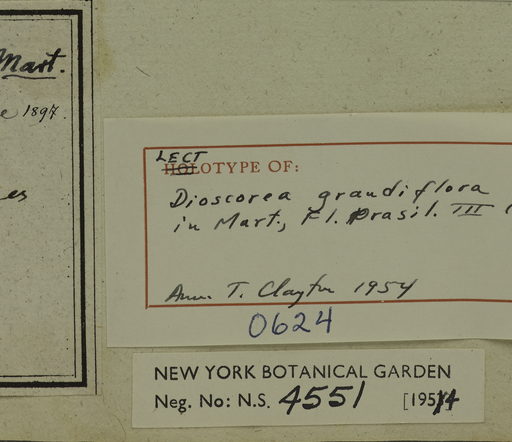 Mart.
1897.
es
LECT
HOLOTYPE OF:
Dioscorea grandiflora
in Mart., Fl. Brasil. III (
T. Clayton 1954
0624
NEW YORK BOTANICAL GARDEN
Neg. No: N.S. 4551 [195